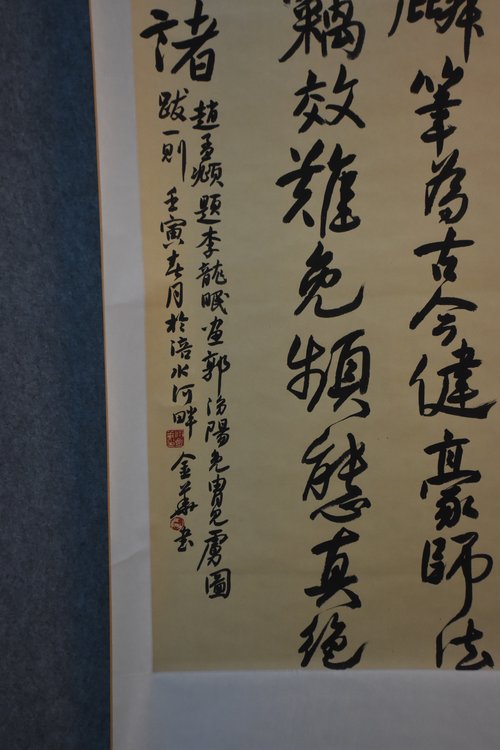 麟笔为古今健豪師法
竊效難免頻態真絶
諸
趙孟頫題李龍眠画郭汾陽免胄見虜圖
跋一則 壬寅春月於涪水河畔 金華书